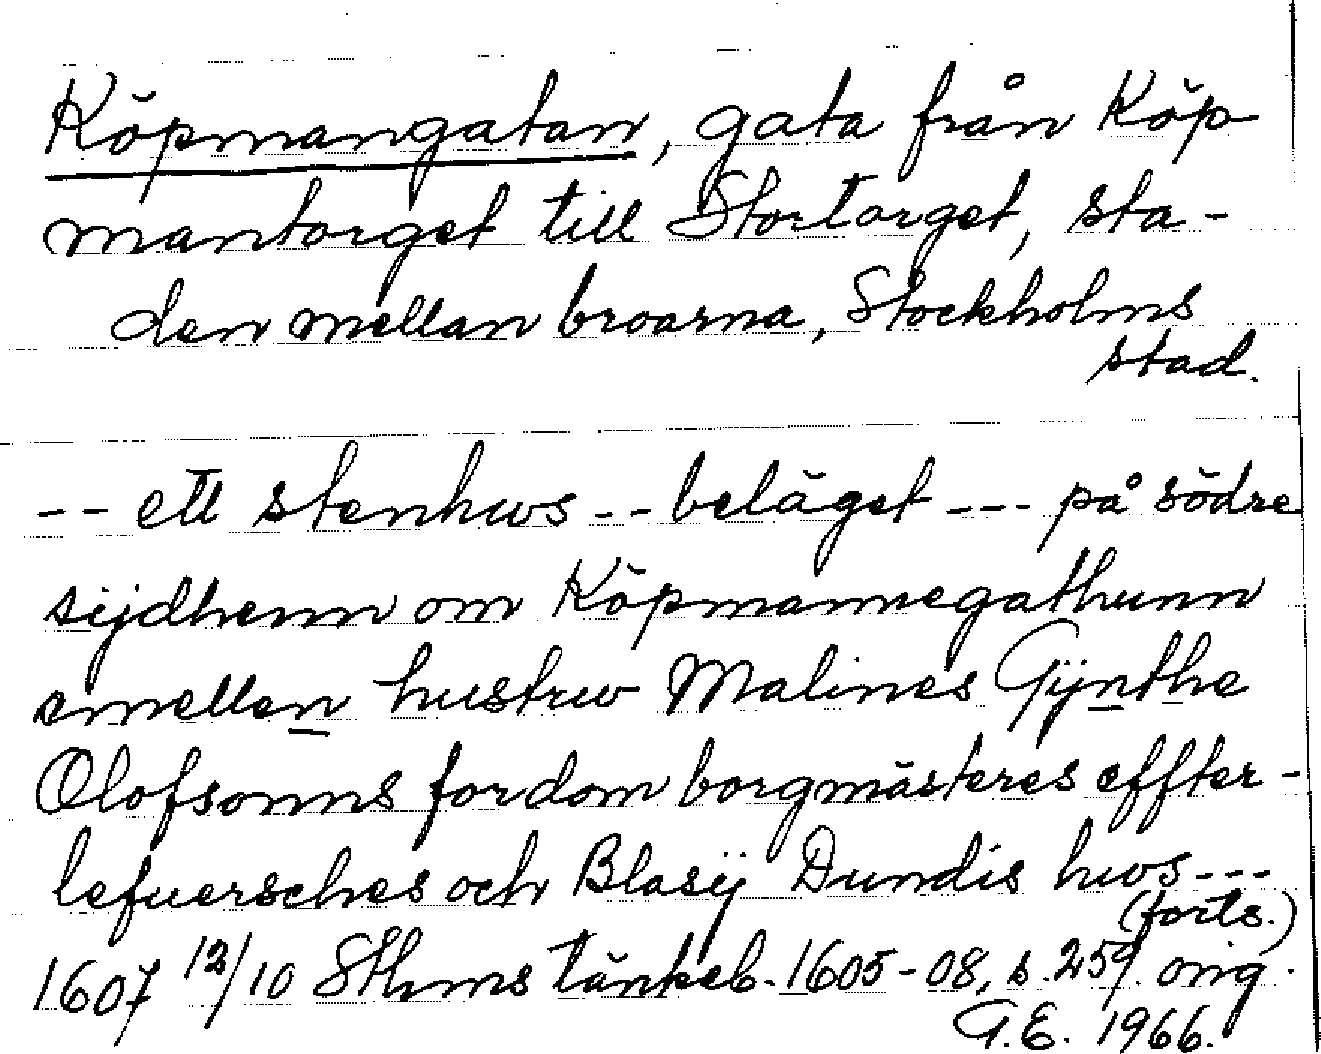 Köpmangatan, gata från Köp
mantorget till Stortorget, sta-
den mellan broarna, Stockholms
stad.
-- ett stenhws -- beläget --- på södre
sijdhenn om Köpmannegathunn
emellen hustrw Malines Gÿnthe
Olofsonns fordom borgmästeres effter-
lefuersches och Blasÿ Dundis hws ---
(forts.)
1607 12/10 Sthms tänkeb. 1605-08, s. 259. orig.
G.E. 1966.